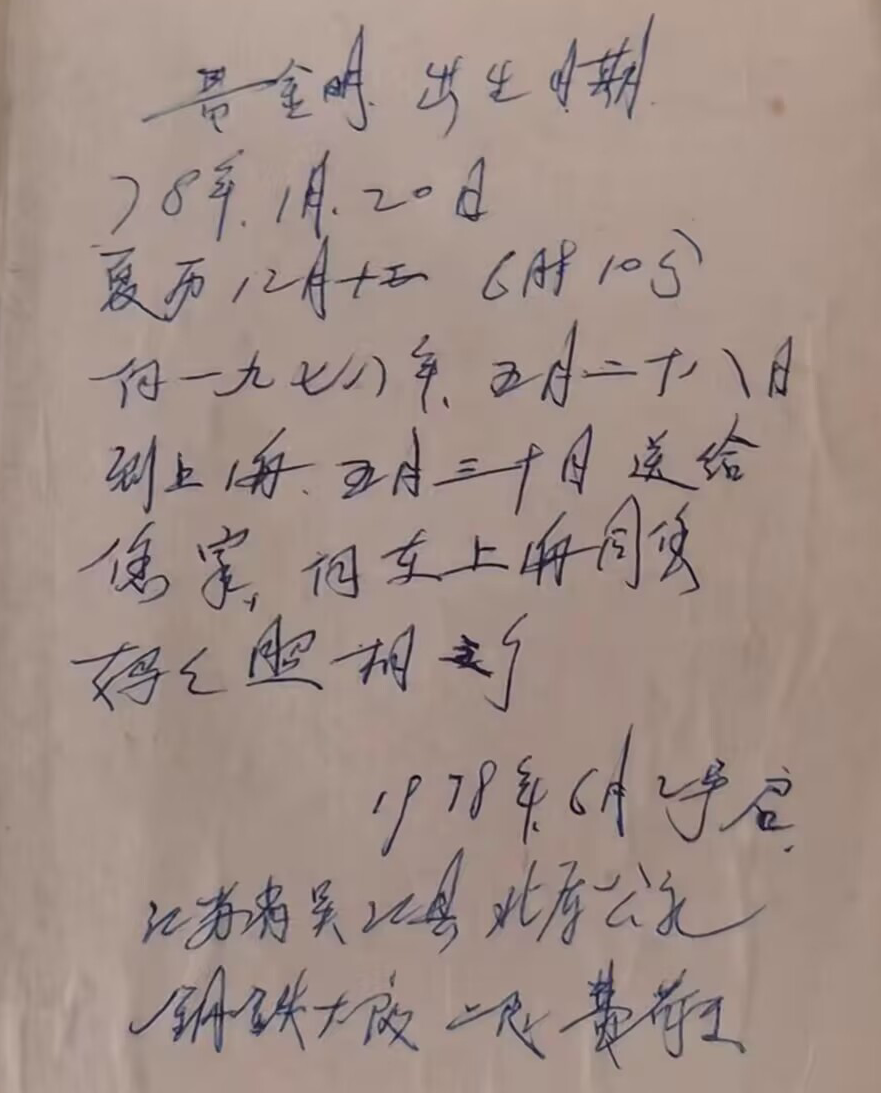 黄金明 出生日期
78年.1月.20日
夏历12月十五 6时10分
何一九七八年.五月二十八日
到上海.五月三十日送给
家,何在上海同
好之照相
1978年.6月2号
江苏省吴江县北库公社
钢铁大队 二队 费